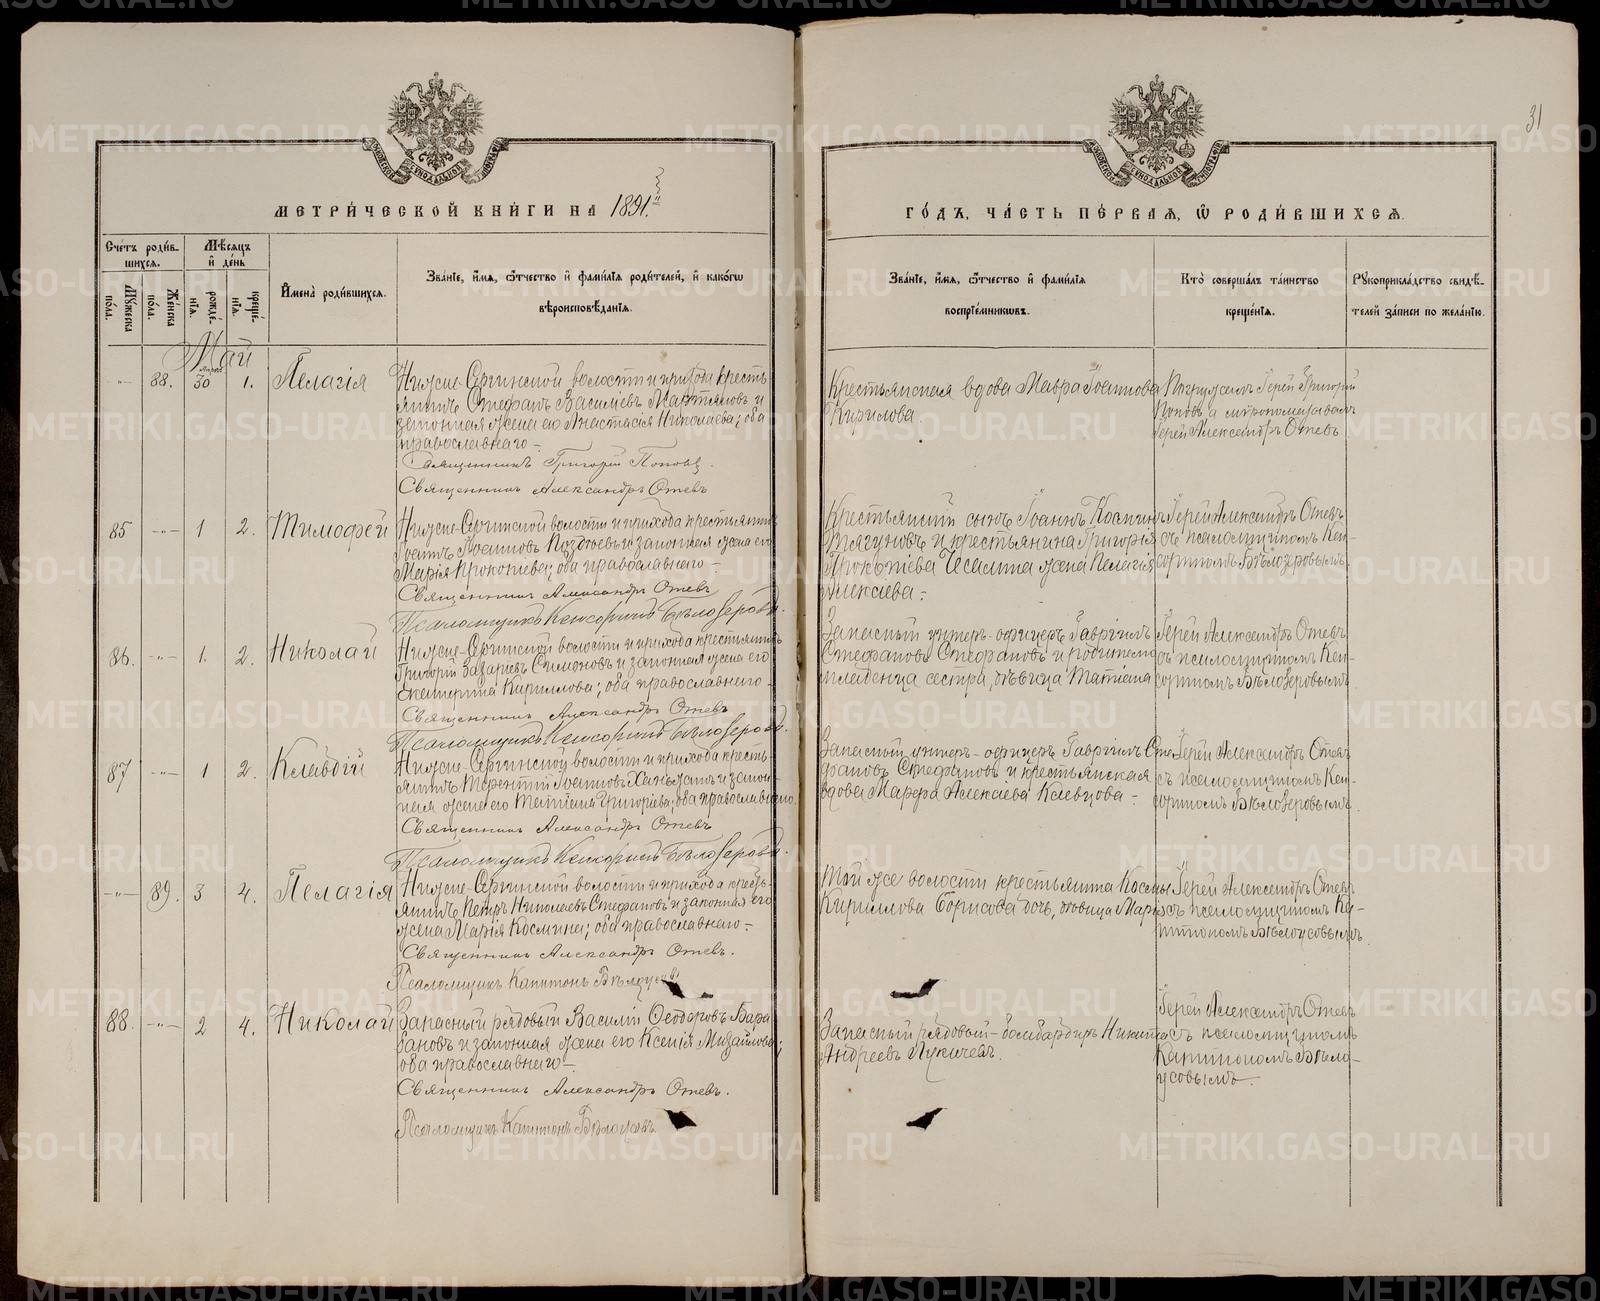 31
МЕТРИ́ЧЕСКОЙ КНИ́ГИ НА 1891.
ГО́ДЪ, ЧА́СТЬ ПЕ́РВАЯ, Ѡ РОДИ́ВШИХСЯ.
Сче́тъ роди́в-
шихся.
Мѣ́сяцъ
и де́нь
Му́жеска
по́ла.
Же́нска
по́ла.
рожде́-
нія.
креще́-
нія.
Имена̀ роди́вшихся.
Зва́ніе, и́мя, ѻ́тчество и фами́лія роди́телей, и како́гѡ
вѣроисповѣ́данія.
Зва́ніе, и́мя, ѻ́тчество и фами́лія
воспріе́мниковъ.
Кто̀ соверша́лъ та́инство
креще́нія.
Рукоприкла́дство свидѣ́-
телей за́писи по жела́нію.
Май
88. 30 1. Пелагія
Нижне-Сергинской волости и прихода кресть-
янинъ Стефанъ Васильевъ Мартьяновъ и
законная жена его Анастасія Николаева; оба
православнаго
Священникъ Григорій Поповъ
Священникъ Александръ Отевъ
Крестьянская вдова Мавра Іоаннова
Кирилова.
Погружалъ Іерей Григорій
Поповъ а миропомазывалъ
Іерей Александръ Отевъ
85 1 2. Тимофей
Нижне-Сергинской волости и прихода крестьянинъ
Іоаннъ Іоанновъ и законная жена его
Марія Прокопіева; оба православнаго
Священникъ Александръ Отевъ
Псаломщикъ Кенсоринъ Бѣлозеровъ.
Крестьянскій сынъ Іоаннъ Козминъ
Тягуновъ и крестьянина Григорія
Прокопіева жена Пелагія
Алексіева
Іерей Александръ Отевъ
съ псаломщикомъ Кен-
сориномъ Бѣлозеровымъ
86. 1. 2. Николай
Нижне-Сергинской волости и прихода крестьянинъ
Григорій Захаріевъ Симоновъ и законная жена его
Екатерина Кириллова; оба православнаго
Священникъ Александръ Отевъ
Псаломщикъ Кенсоринъ Бѣлозеровъ.
Запасный унтеръ-офицеръ Гавріилъ
Стефановъ Стефановъ и родителю
младенца сестра, дѣвица Татіана
Іерей Александръ Отевъ
съ псаломщикомъ Кен-
сориномъ Бѣлозеровымъ
87 1 2. Клавдій
Нижне-Сергинской волости и прихода кресть-
янинъ Терентій Іоанновъ и закон-
ная жена его Татіана Григоріева; оба православнаго.
Священникъ Александръ Отевъ
Псаломщикъ Кенсоринъ Бѣлозеровъ.
Запасный унтеръ-офицеръ Гавріилъ Сте-
фановъ Стефановъ и крестьянская
вдова Марфа Алексіева Клевцова
Іерей Александръ Отевъ
съ псаломщикомъ Кен-
сориномъ Бѣлозеровымъ
89. 3 4. Пелагія
Нижне-Сергинской волости и прихода кресть-
янинъ Петръ Николаевъ Стефановъ и законная его
жена Марія Космина; оба православнаго
Священникъ Александръ Отевъ.
Псаломщикъ Капитонъ Бѣлоусовъ
Той же волости крестьянина Космы
Кириллова Борисова дочь, дѣвица Марія
Іерей Александръ Отевъ
съ псаломщикомъ Ка-
питономъ Бѣлоусовымъ.
88. 2 4. Николай
Запасный рядовый Василій Ѳеодоровъ Бара-
бановъ и законная жена его Ксенія Михайлова;
оба православнаго
Священникъ Александръ Отевъ.
Псаломщикъ Капитонъ Бѣлоусовъ.
Запасный рядовый-бомбардиръ Никита
Андреевъ Лукичевъ.
Іерей Александръ Отевъ
съ псаломщикомъ
Капитономъ Бѣло-
усовымъ
METRIKI.GASO-URAL.RU